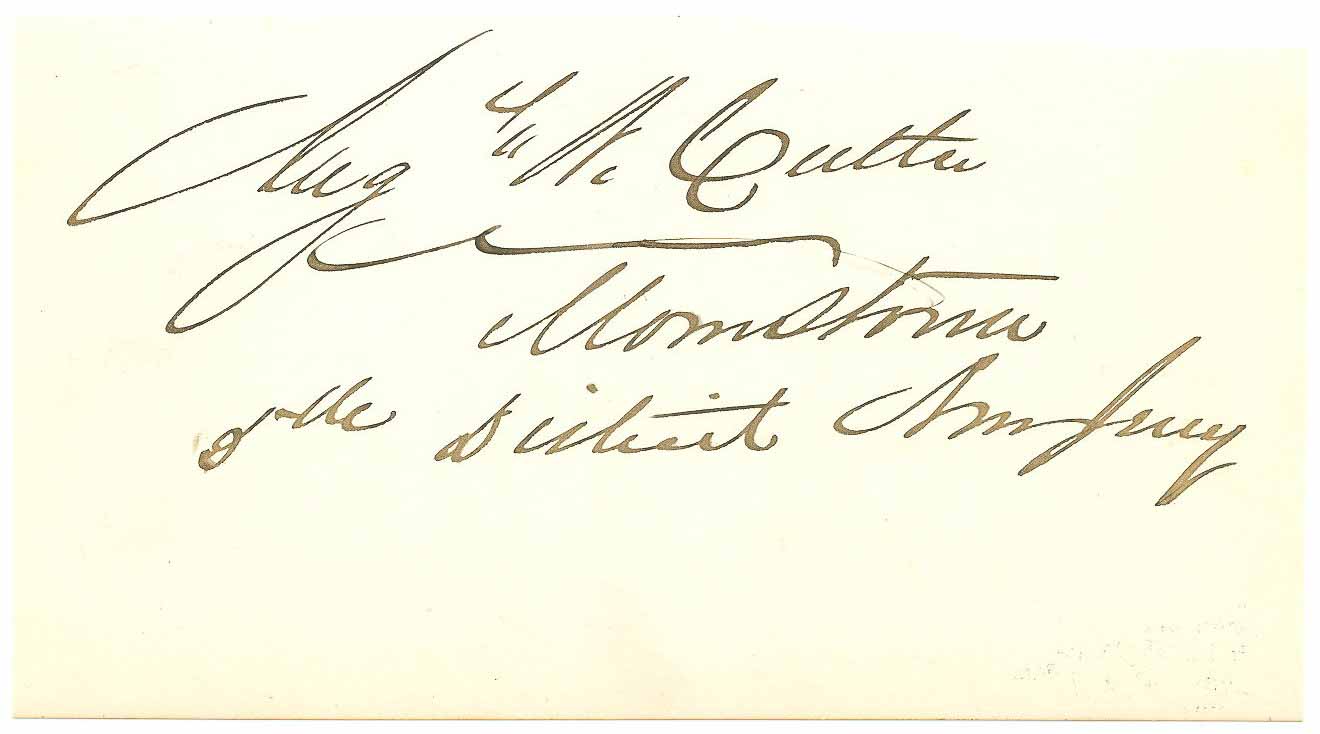 Augus W. Cutler
Morristown
5th District New Jersey